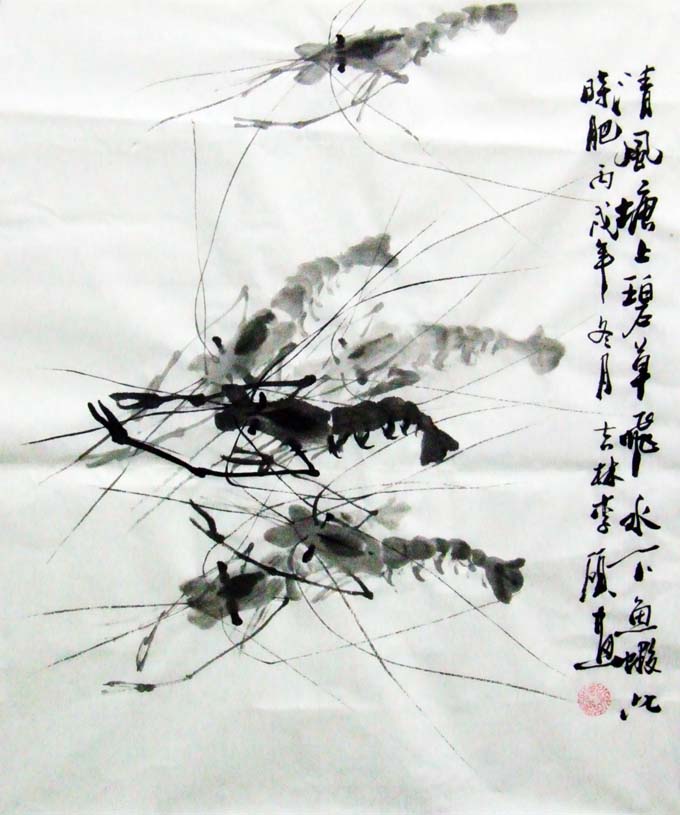 清風塘上碧草飛水下魚蝦此
時肥丙戌年冬月吉林李畫